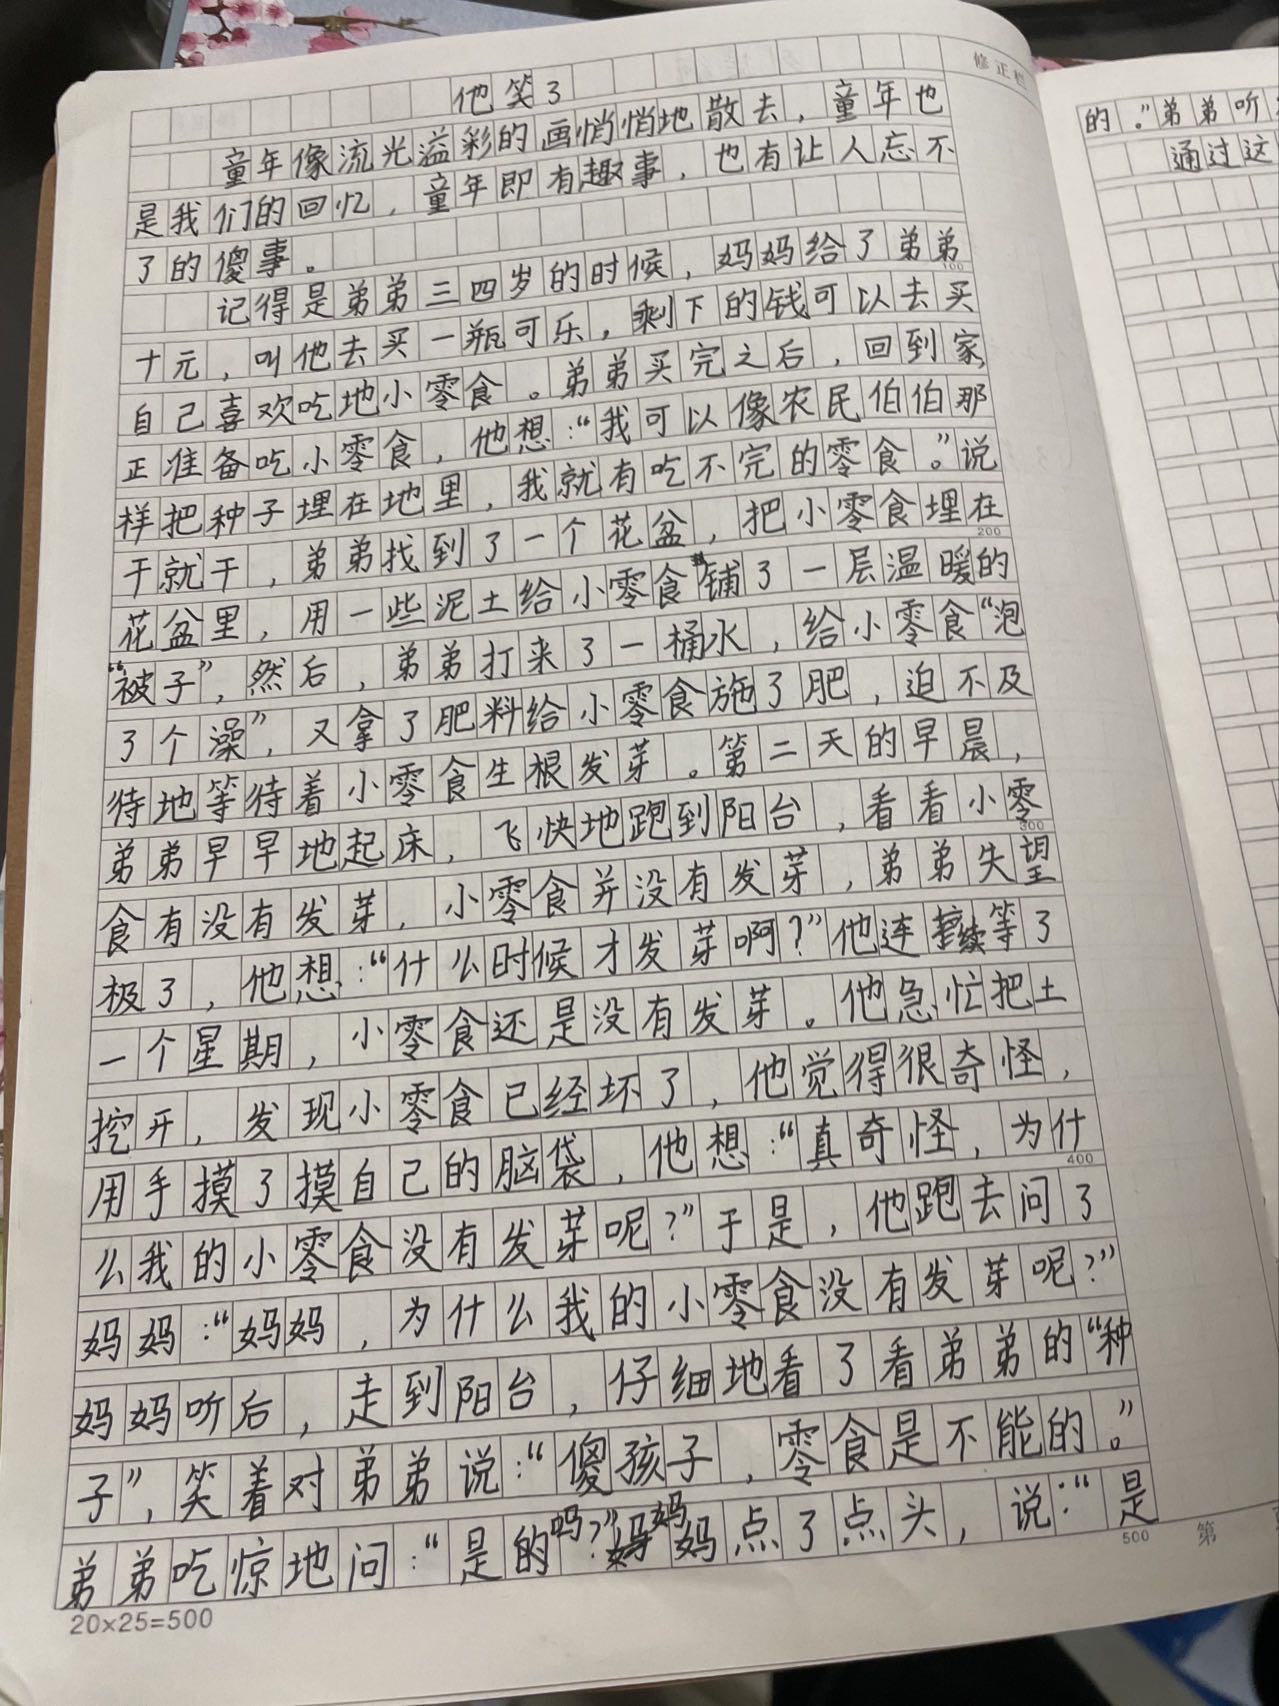 修正栏
他笑了
童年像流光溢彩的画悄悄地散去，童年也
是我们的回忆，童年即有趣事，也有让人忘不
了的傻事。
记得是弟弟三四岁的时候，妈妈给了弟弟
100
十元，叫他去买一瓶可乐，剩下的钱可以去买
自己喜欢吃地小零食。弟弟买完之后，回到家，
正准备吃小零食，他想：“我可以像农民伯伯那
样把种子埋在地里，我就有吃不完的零食。”说
干就干，弟弟找到了一个花盆，把小零食埋在
200
花盆里，用一些泥土给小零食铺了一层温暖的
“被子”，然后，弟弟打来了一桶水，给小零食“泡
了个澡”，又拿了肥料给小零食施了肥，迫不及
待地等待着小零食生根发芽。第二天的早晨，
弟弟早早地起床，飞快地跑到阳台，看看小零
300
食有没有发芽，小零食并没有发芽，弟弟失望
极了，他想：“什么时候才发芽啊？”他连续等了
一个星期，小零食还是没有发芽。他急忙把土
挖开，发现小零食已经坏了，他觉得很奇怪，
用手摸了摸自己的脑袋，他想：“真奇怪，为什
400
么我的小零食没有发芽呢？”于是，他跑去问了
妈妈：“妈妈，为什么我的小零食没有发芽呢？”
妈妈听后，走到阳台，仔细地看了看弟弟的“种
子”，笑着对弟弟说：“傻孩子，零食是不能的。”
弟弟吃惊地问：“是的吗？”妈妈点了点头，说：“是
500
第
20×25=500
的。”弟弟听
通过这